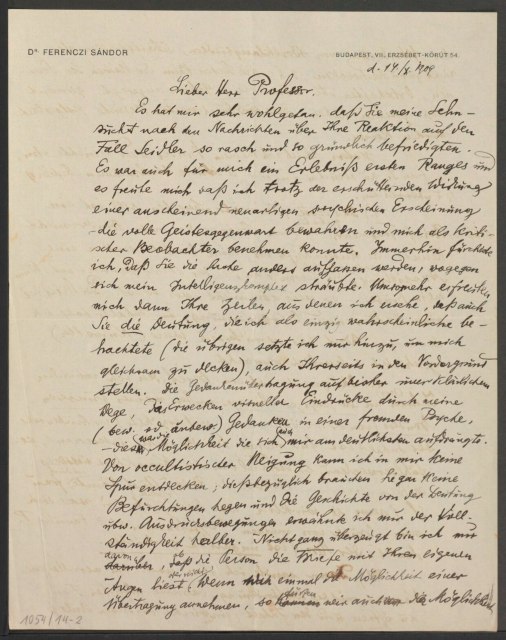 Dr. FERENCZI SÁNDOR
BUDAPEST, VII., ERZSÉBET-KÖRÚT 54.
d. 14/X. 1909
Lieber Herr Professor.
Es hat mir sehr wohlgetan, daß Sie meine Sehn-
sucht nach den Nachrichten über Ihre Reaktion auf den
Fall Seidler so rasch und so gründlich befriedigten.
Es war auch für mich ein Erlebniß ersten Ranges und
es freute mich daß ich trotz der erschütternden Wirkung
einer anscheinend neuartigen psychischen Erscheinung
die volle Geistesgegenwart bewahren und mich als kriti-
scher Beobachter benehmen konnte. Immerhin fürchtete
ich, daß Sie die Sache anders auffassen werden, wogegen
sich mein Intelligenzkomplex sträubte. Umsomehr erfreuten
mich dann Ihre Zeilen, aus denen ich ersehe, daß auch
Sie die Deutung, die ich als einzig wahrscheinliche be-
trachtete (die übrigen setzte ich nur hinzu, um mich
gleichsam zu decken), auch Ihrerseits in den Vordergrund
stellen. Die Gedankenübertragung auf bisher unerklärlichem
Wege, das Erwecken virtueller Eindrücke durch meine
(bew. od. unbew.) Gedanken in einer fremden Psyche,
– dies war die Möglichkeit die sich auch mir am deutlichsten aufdrängte.
Von occultistischer Neigung kann ich in mir keine
Spur entdecken; diesbezüglich brauchen Sie gar keine
Befürchtungen hegen und die Geschichte von der Deutung
übw. Ausdrucksbewegungen erwähnte ich nur der Voll-
ständigkeit halber. Nicht ganz überzeugt bin ich nur
davon, daß die Person die Briefe mit Ihren eigenen
Augen liest. Wenn wir einmal die Möglichkeit einer
Übertragung annehmen, so dürfen wir auch die Möglichkeit
1054/14-2